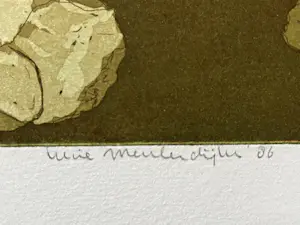 Lucie Meulendijks '86